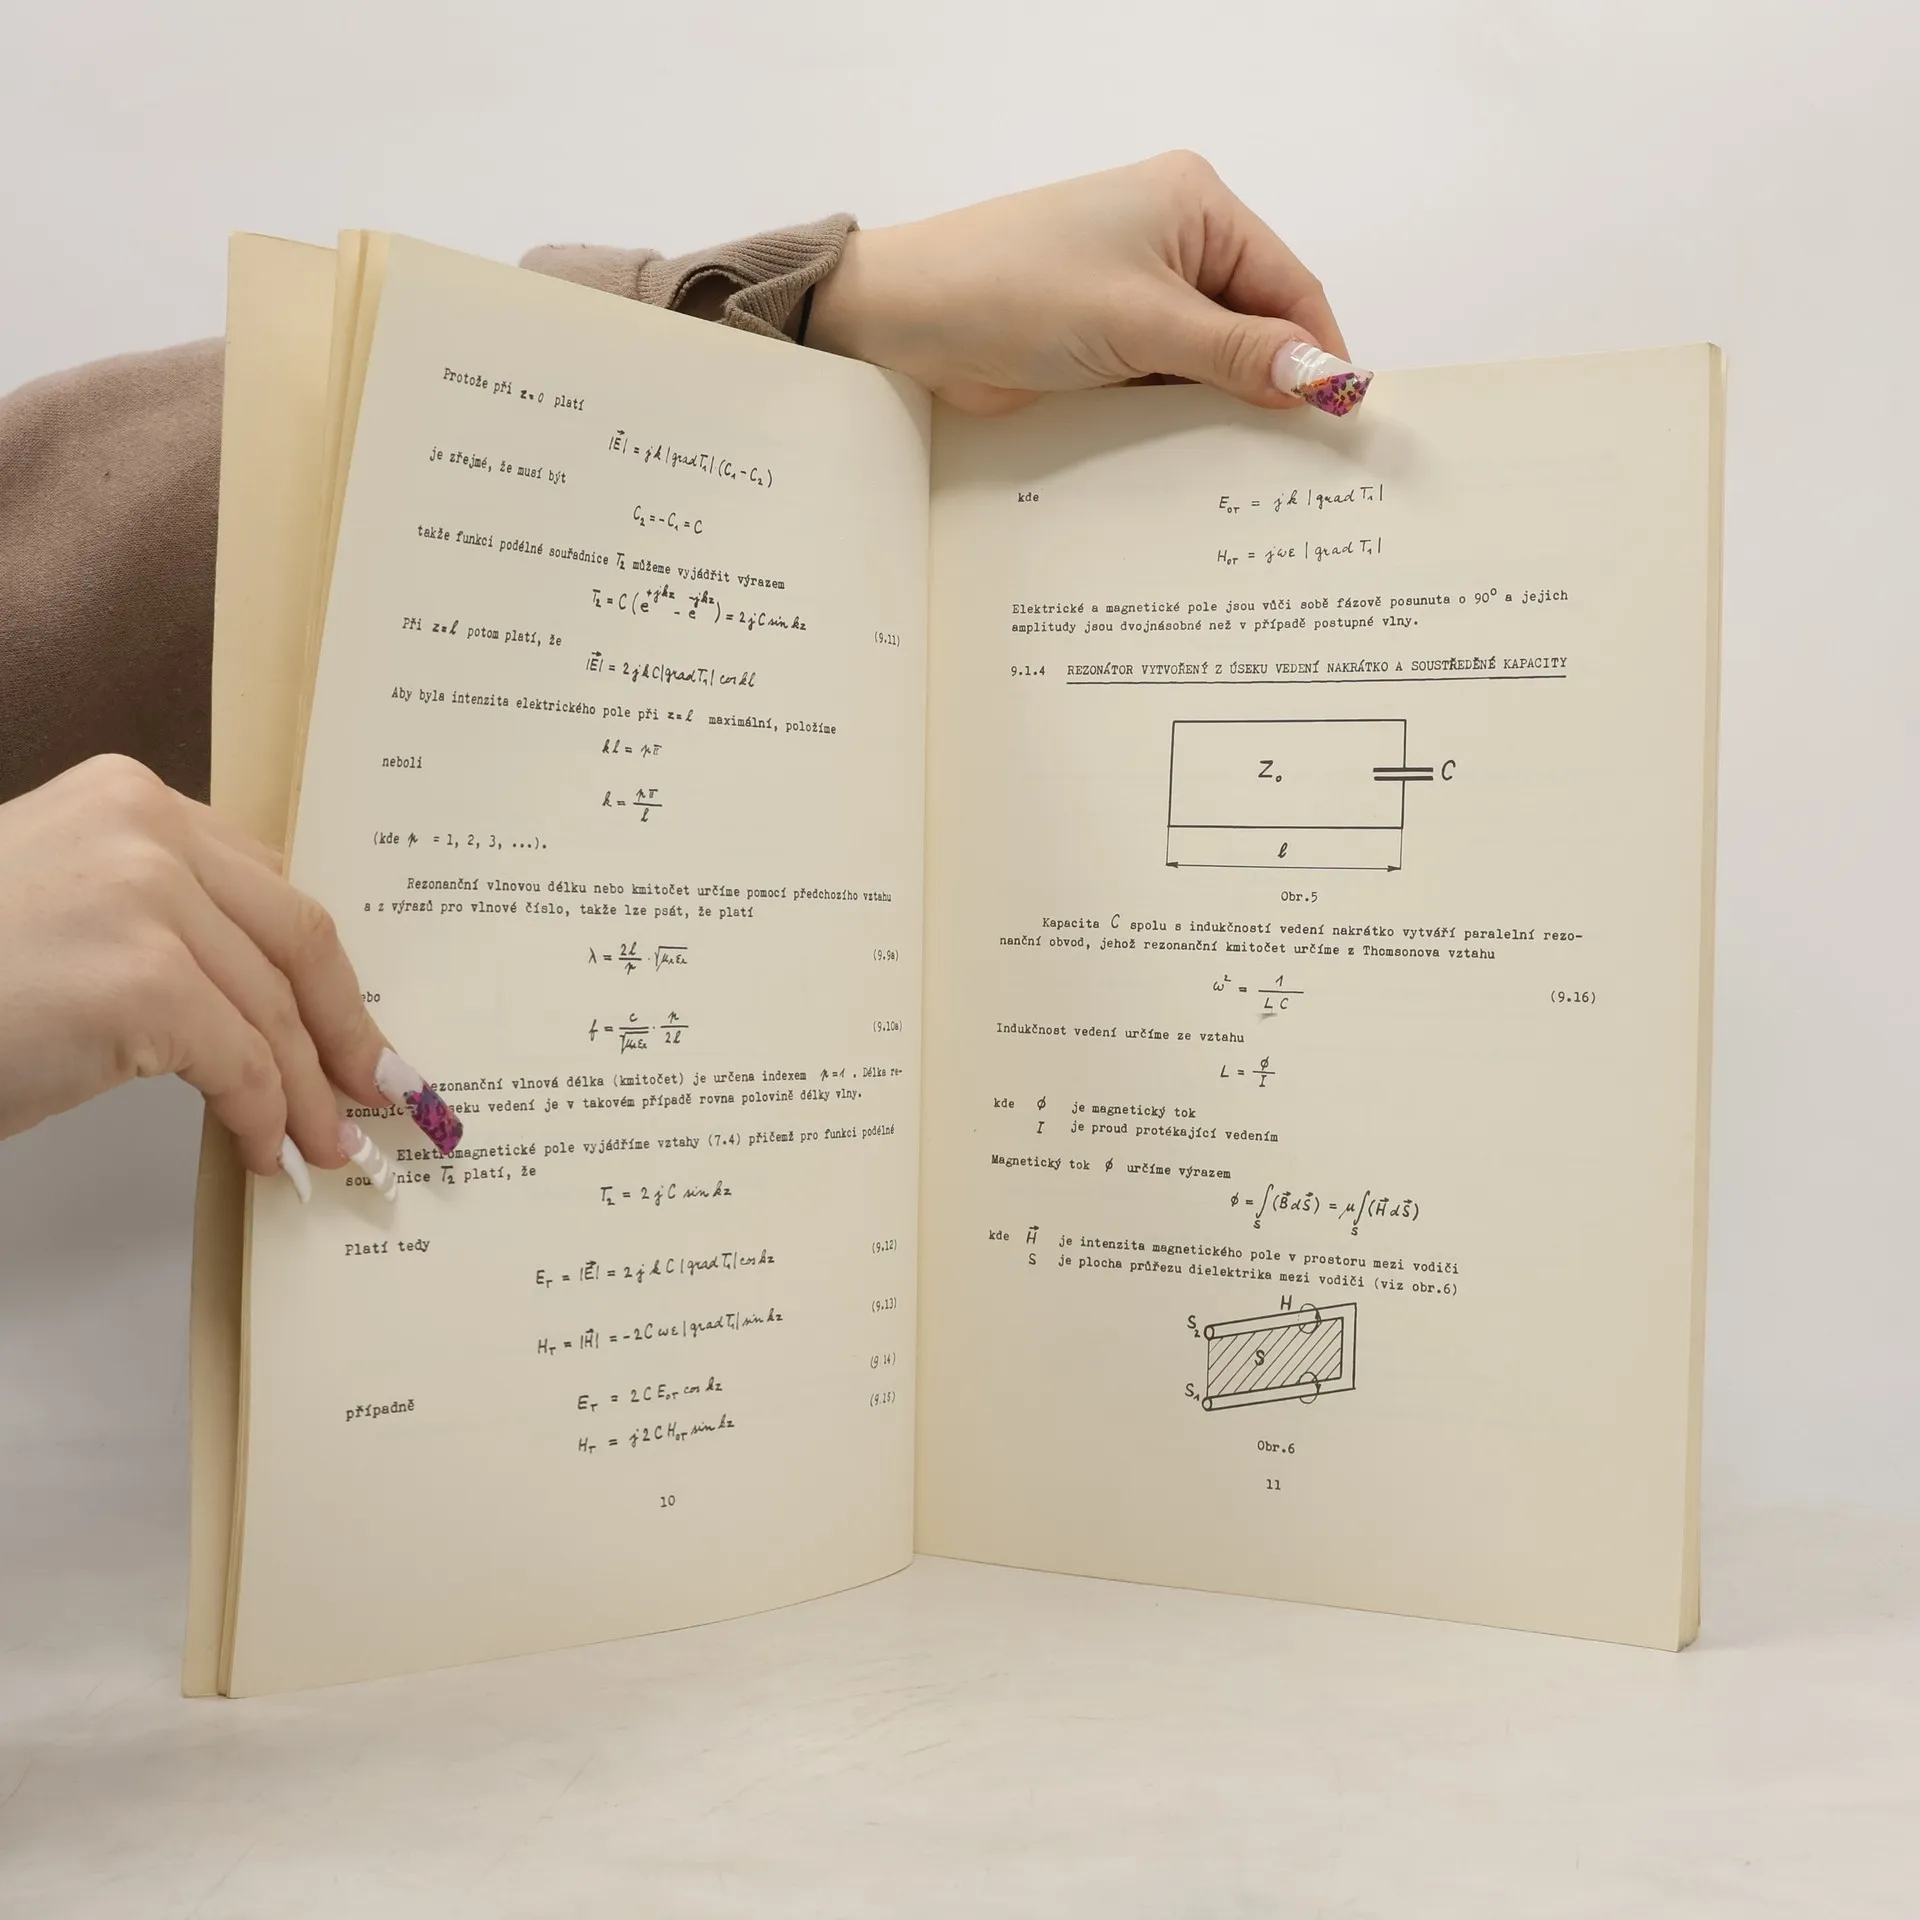 Protože při z=0 platí
|E⃗| = jk|grad T₁|(C₁ - C₂)
je zřejmé, že musí být
C₂ = -C₁ = C
takže funkci podélné souřadnice T₂ můžeme vyjádřit výrazem
T₂ = C(e^{+jkz} - e^{-jkz}) = 2jC sin kz (9.11)
Při z=l potom platí, že
|E⃗| = 2jkC|grad T₁| cos kl
Aby byla intenzita elektrického pole při z=l maximální, položíme
kl = pπ
neboli
k = pπ/l
(kde p = 1, 2, 3, ...).
Rezonanční vlnovou délku nebo kmitočet určíme pomocí předchozího vztahu
a z výrazů pro vlnové číslo, takže lze psát, že platí
λ = 2l/p · √(μᵣεᵣ) (9.9a)
ebo
f = c/√(μᵣεᵣ) · p/2l (9.10a)
ezonanční vlnová délka (kmitočet) je určena indexem p=1. Délka re-
zonujíc seku vedení je v takovém případě rovna polovině délky vlny.
Elektromagnetické pole vyjádříme vztahy (7.4) přičemž pro funkci podélné
sou nice T₂ platí, že
T₂ = 2jC sin kz
Platí tedy (9.12)
E_T = |E⃗| = 2jkC|grad T₁| cos kz
(9.13)
H_T = |H⃗| = -2Cωε|grad T₁| sin kz
(9.14)
E_T = 2CE_{oT} cos kz
případně (9.15)
H_T = j2CH_{oT} sin kz
10
kde E_{oT} = jk|grad T₁|
H_{oT} = jωε|grad T₁|
Elektrické a magnetické pole jsou vůči sobě fázově posunuta o 90° a jejich
amplitudy jsou dvojnásobné než v případě postupné vlny.
9.1.4 REZONÁTOR VYTVOŘENÝ Z ÚSEKU VEDENÍ NAKRÁTKO A SOUSTŘEDĚNÉ KAPACITY
Z₀ C
l
Obr.5
Kapacita C spolu s indukčností vedení nakrátko vytváří paralelní rezo-
nanční obvod, jehož rezonanční kmitočet určíme z Thomsonova vztahu
ω² = 1/LC (9.16)
Indukčnost vedení určíme ze vztahu
L = ϕ/I
kde ϕ je magnetický tok
I je proud protékající vedením
Magnetický tok ϕ určíme výrazem
ϕ = ∫_S (B⃗dS⃗) = μ∫_S (H⃗dS⃗)
kde H⃗ je intenzita magnetického pole v prostoru mezi vodiči
S je plocha průřezu dielektrika mezi vodiči (viz obr.6)
H
S₂
S
S₁
Obr.6
11